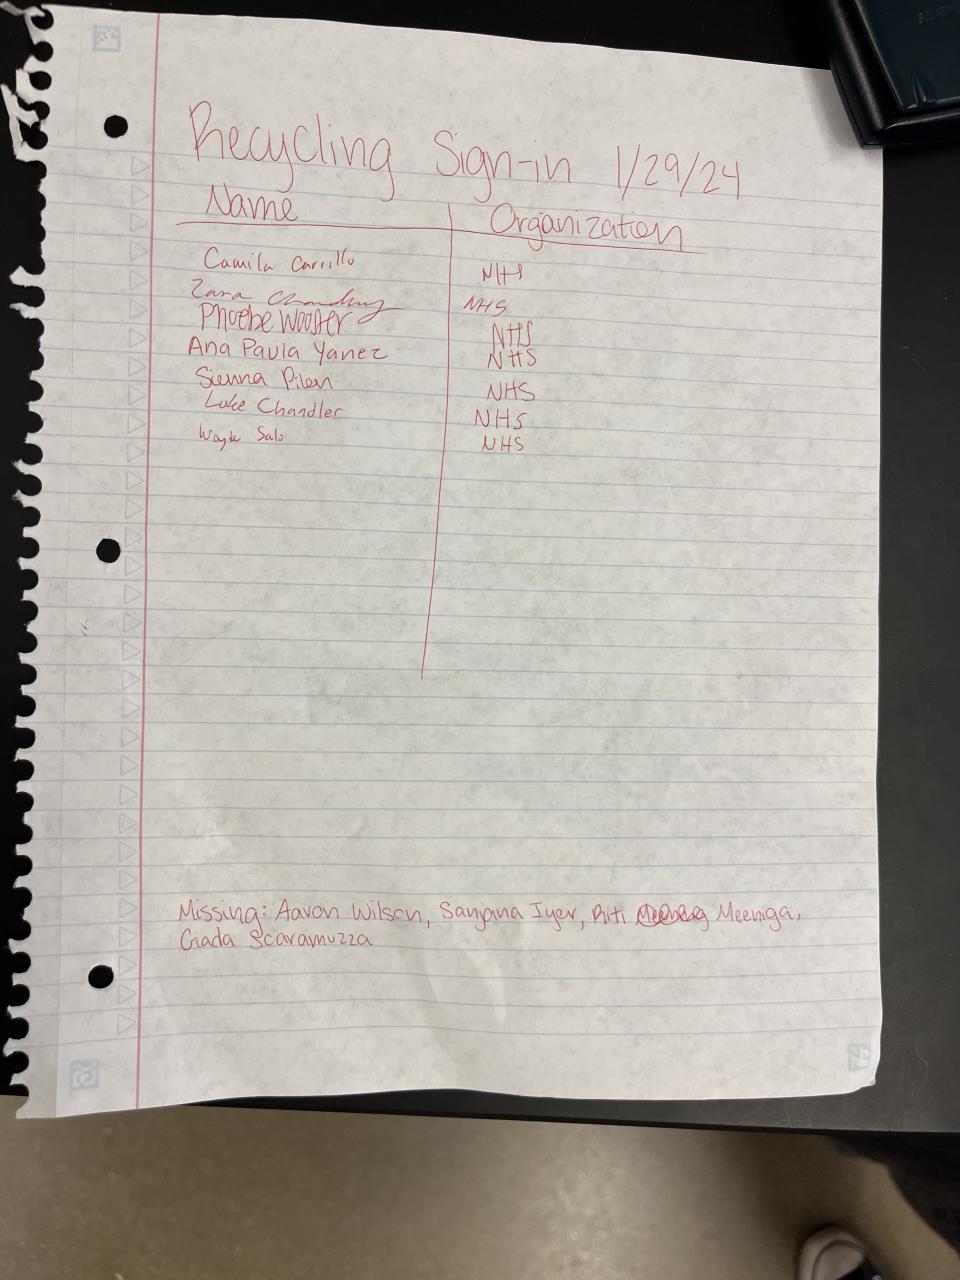 Recycling Sign-in 1/29/24
Name Organization
Camila Carrillo NHS
Zara Chowdhury NHS
Phoebe Wooster NHS
Ana Paula Yanez NHS
Sienna Pilon NHS
Luke Chandler NHS
Salo NHS
Missing: Aaron Wilson, Sanjana Iyer, Riti Meeniga,
Giada Scaramuzza